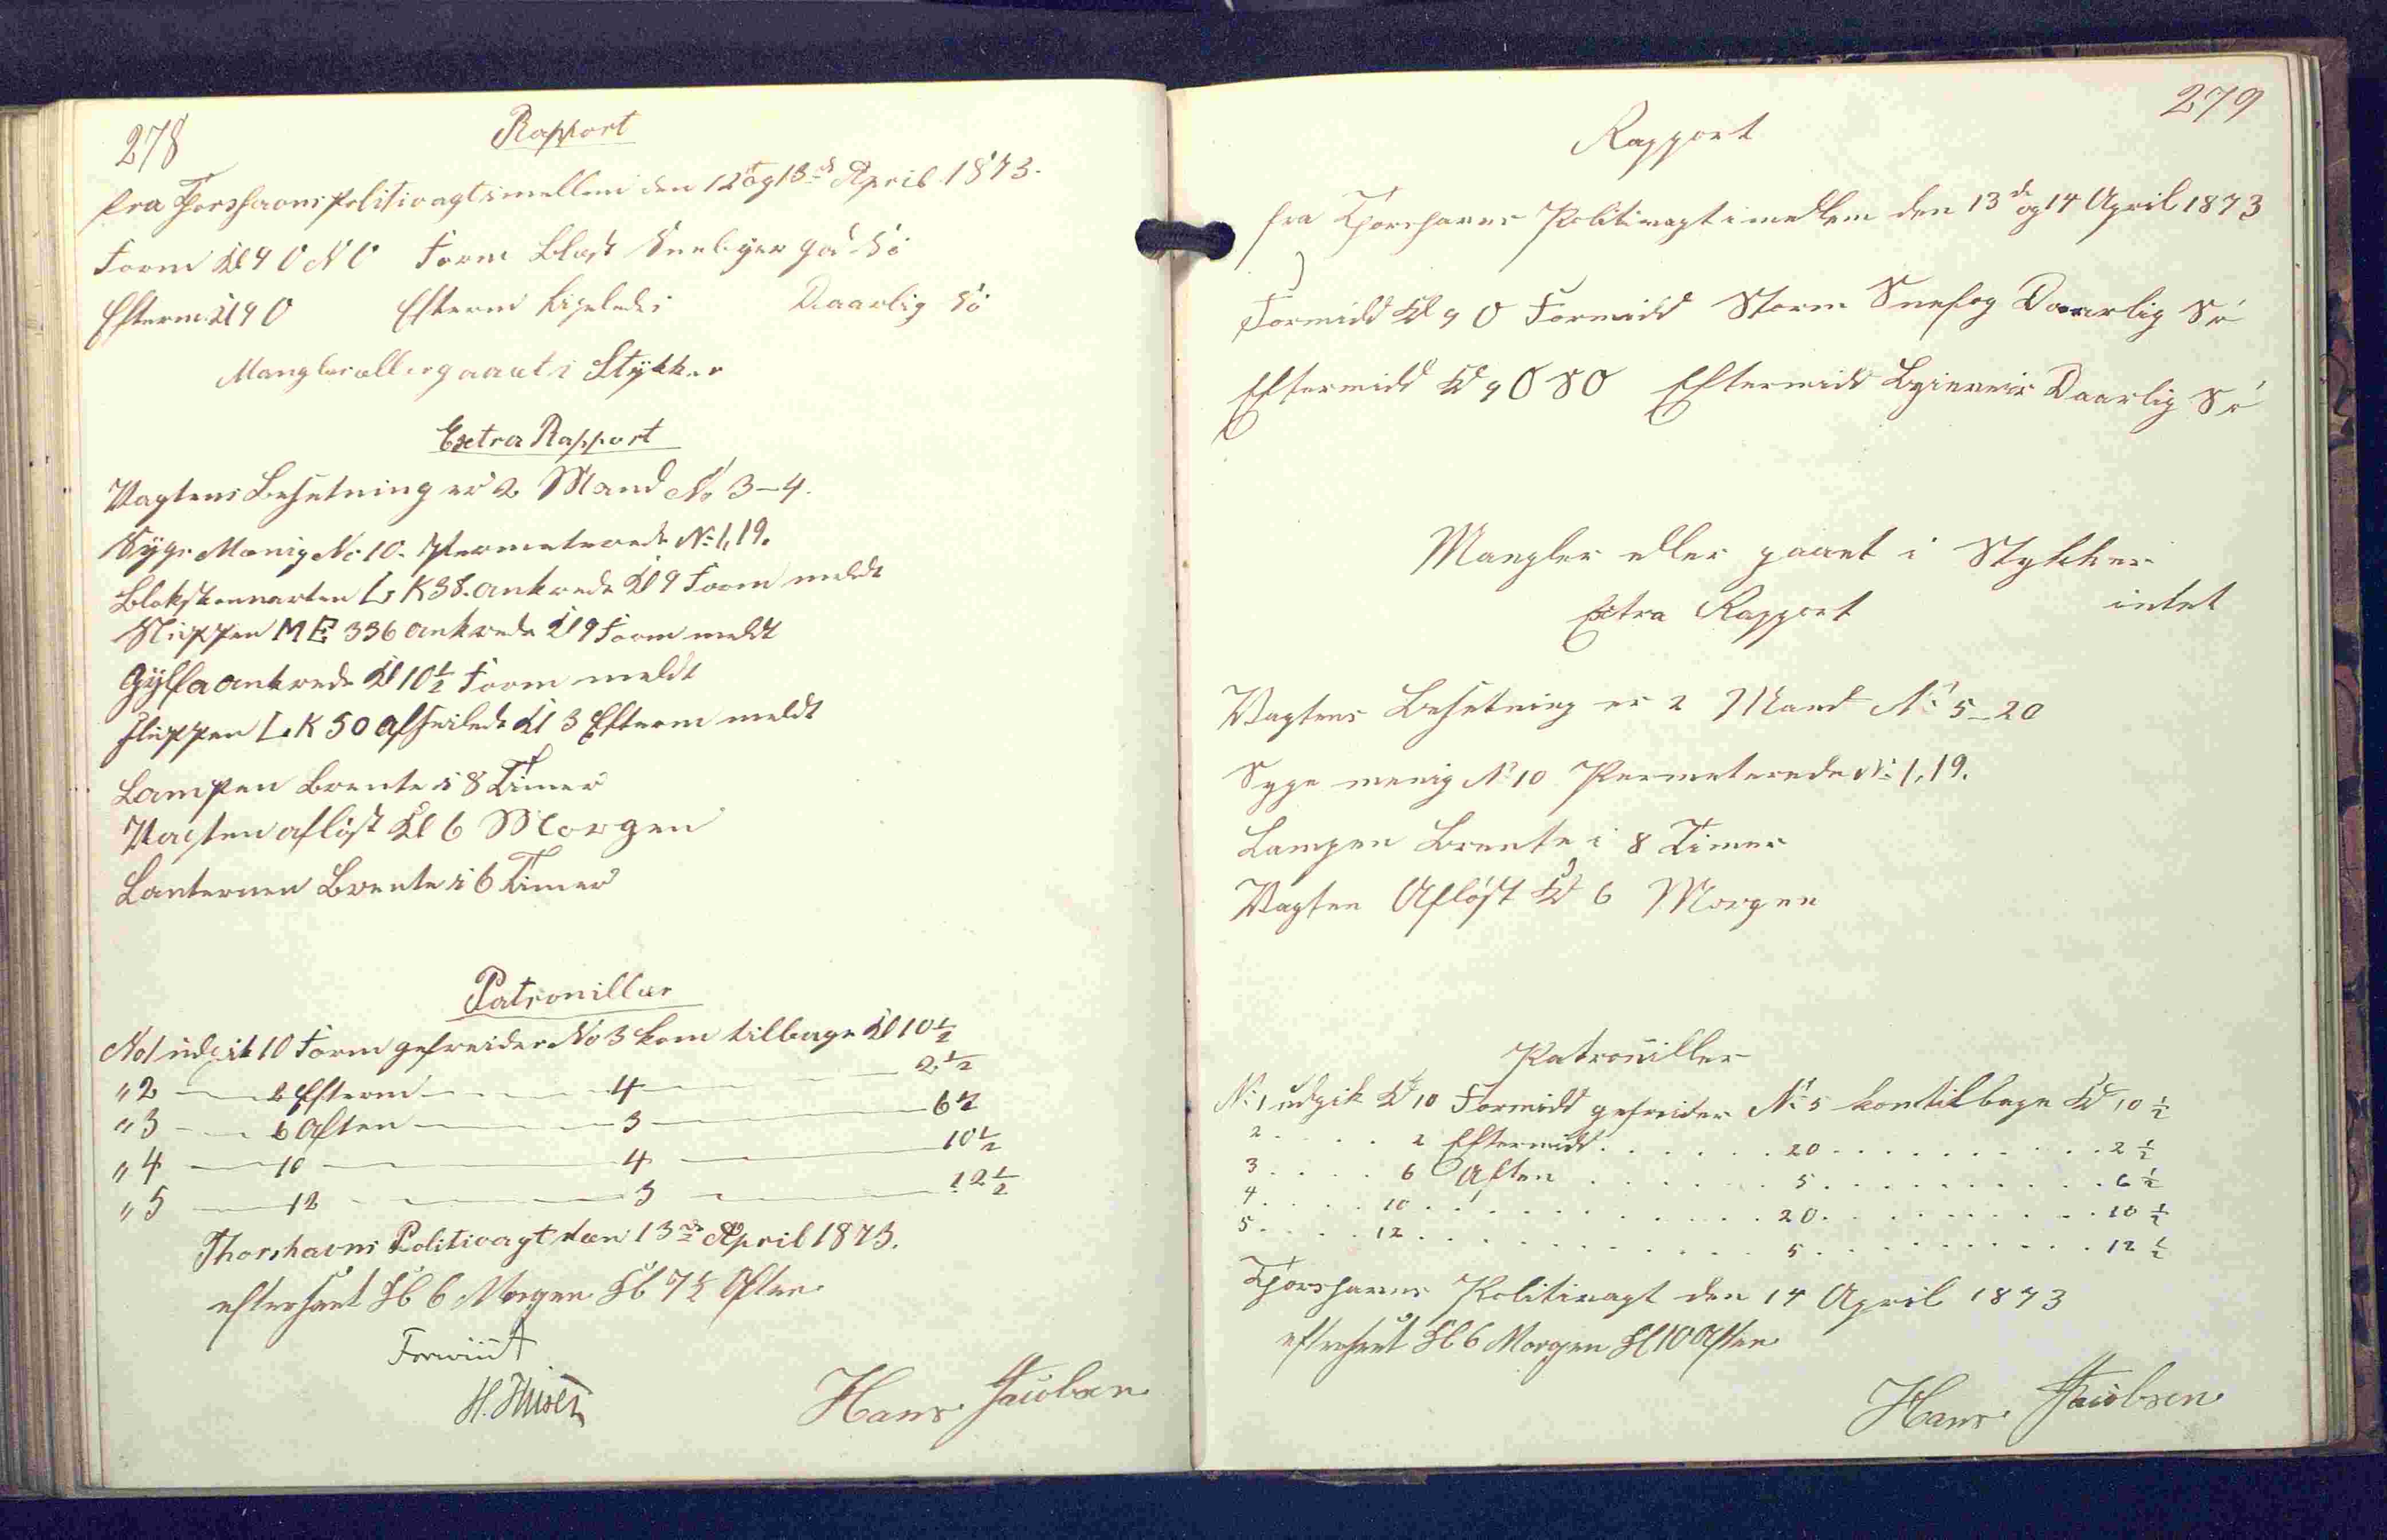 278
Rapport
fra Thorshavns Politivagt imellem den 12 og 13de April 1873.
Form Kl 9 O N O Form Blæst Sneebyer gaa Sö
Efterm Kl 9 O Efterm ligeledes Daarlig Sö
Mangler eller gaaet i Stykker
Extra Rapport
Vagtens Besetning er 2 Mand No 3-4.
Syge Menig No 10. Permeterede No 1, 19.
LK 38. ankrede Kl 9 Form meldt
Sluppen ME 336 ankrede Kl 9 Form meldt
Gylfa ankrede Kl 10½ Form meldt
Sluppen LK 50 afseilede Kl 3 Efterm meldt
Lampen Brente i 8 Timer
Vagten aflöst Kl 6 Morgen
Lanternen Brente i 6 Timer
Patronillær
No 1 udgik 10 Form gefreider No 3 kom tilbage Kl 10½
" 2 — 2 Efterm — 4 — 2½
" 3 — 6 Aften — 3 — 6½
" 4 — 10 — 4 — 10½
" 5 — 12 — 3 — 12½
Thorshavns Politivagt den 13de April 1873.
efterseet Kl 6 Morgen Kl 7½ Aften
Hans Jacobsen
279
Rapport
fra Thorshavns Politivagt imellem den 13de og 14 April 1873
Formidd Kl 9 O Formidd Storm Snefog Daarlig Sö
Eftermidd Kl 9 O S O Eftermidd Daarlig Sö
Mangler eller gaaet i Stykker
intet
Extra Rapport
Vagtens Besetning er 2 Mand No 5-20
Syge menig No 10 Permeterede No 1, 19.
Lampen Brente i 8 Timer
Vagten Aflöst Kl 6 Morgen
Patrouiller
No 1 udgik Kl 10 Formidd gefreider No 5 kom tilbage Kl 10½
2 . . . . 2 Eftermidd . . . . . . 20 . . . . . . . . . . 2½
3 . . . . 6 Aften . . . . . . . 5 . . . . . . . . . . 6½
4 . . . . 10 . . . . . . . . . . . 20 . . . . . . . . . . 10½
5 . . . . 12 . . . . . . . . . . . 5 . . . . . . . . . . 12½
Thorshavns Politivagt den 14 April 1873
efterseet Kl 6 Morgen Kl 10 Aften
Hans Jacobsen